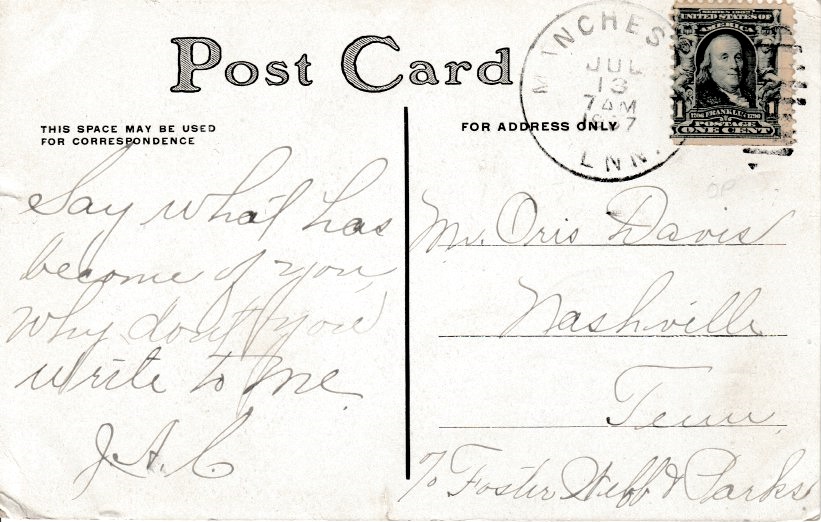 Post Card
THIS SPACE MAY BE USED
FOR CORRESPONDENCE
FOR ADDRESS ONLY
INCHES
JUL
13
7 AM
1907
ENN.
SERIES 1902
UNITED STATES OF
AMERICA
1 1
1706 FRANKLIN 1790
POSTAGE
ONE CENT
Say what has
become of you,
Why dont you
write to me.
J.A.C.
Mr. Oris Davis
Nashville
Tenn.
% Foster Webb & Parks